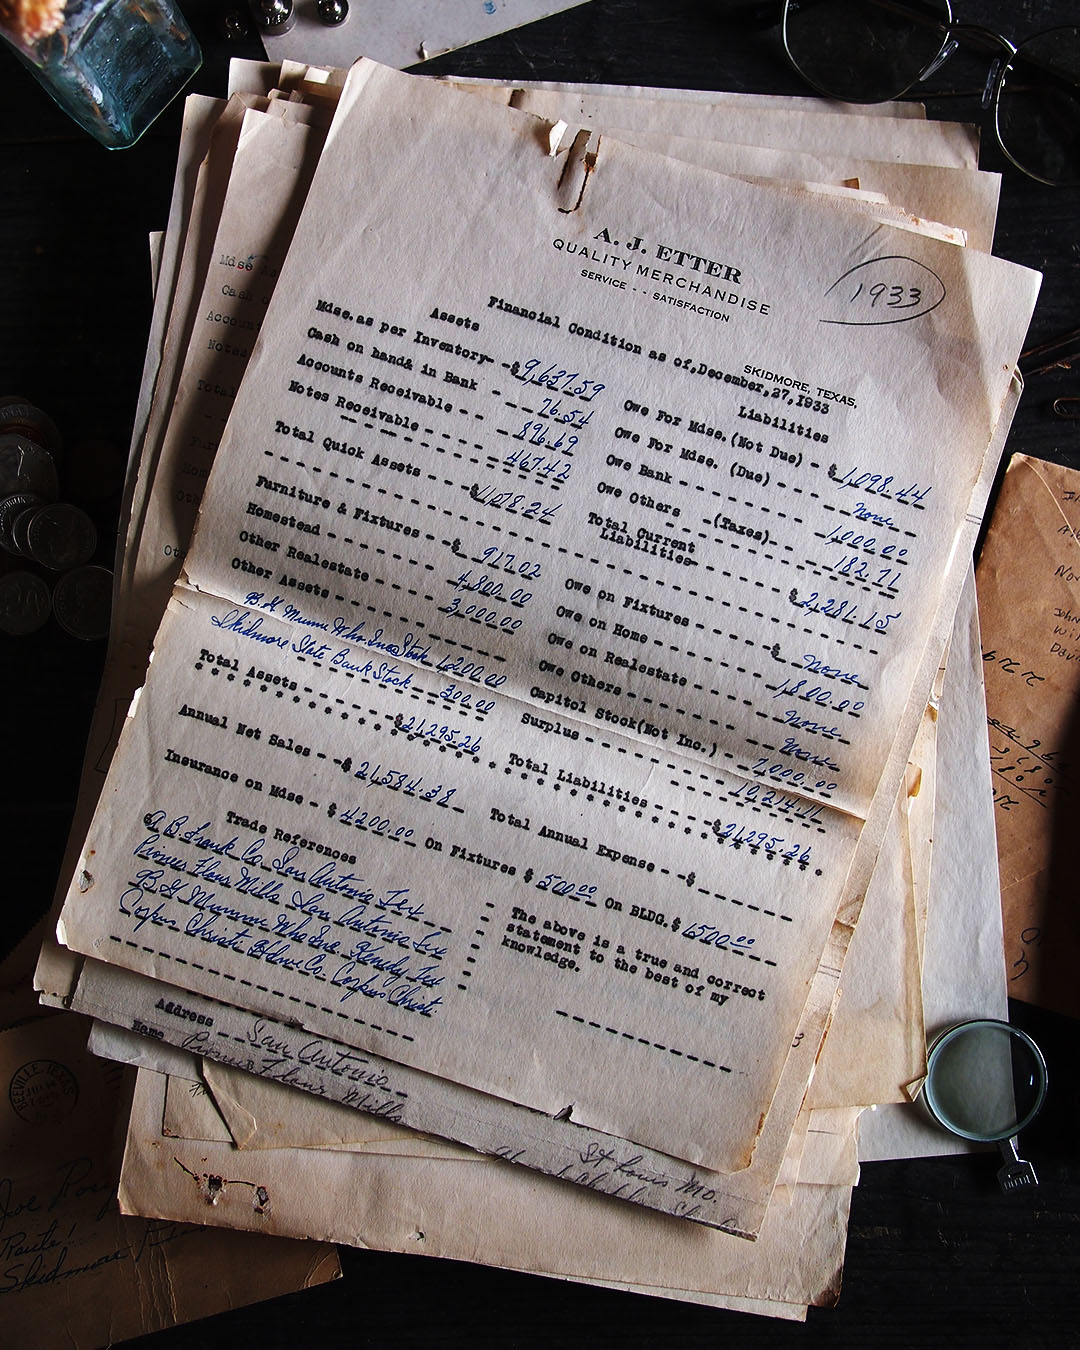 A. J. ETTER
QUALITY MERCHANDISE
SERVICE - - SATISFACTION
1933
SKIDMORE, TEXAS,
Financial Condition as of, December, 27, 1933
Assets
Mdse. as per Inventory- -$ 9,637.59
Cash on hand& in Bank - - - - 76.54
Accounts Receivable - - - - 896.69
Notes Receivable- - - - - - 467.42
Total Quick Assets - - - -$11,078.24
Furniture & Fixtures - - -$ 917.02
Homestead - - - - - - - 4,800.00
Other Realestate - - - - 3,000.00
Other Assets- - - - - - -
Whs. Inc Stock 1,200.00
Skidmore State Bank Stock 300.00
Total Assets - - - - - -$21,295.26
Liabilities
Owe For Mdse. (Not Due) - $1,098.44
Owe For Mdse. (Due) - - - none
Owe Bank - - - - - - 1,000.00
Owe Others - (Taxes)- - - 182.71
Total Current
Liabilities- - - - - $2,281.15
Owe on Fixtures - - - - $ none
Owe on Home - - - - - 1,800.00
Owe on Realestate - - - none
Owe Others - - - - - - none
Capitol Stock(Not Inc.) 7,000.00
Surplus - - - - - - - 10,214.11
Total Liabilities - - -$21,295.26
Annual Net Sales - -$ 21,584.38 Total Annual Expense - -$
Insurance on Mdse - $ 4200.00 On Fixtures $ 500.00 On BLDG.$ 1500.00
Trade References
A B. Frank Co. San Antonio Tex
Pioneer Flour Mills San Antonio Tex
Whs Inc. Kenedy Tex
Corpus Christi Hdwe Co. Corpus Christi.
The above is a true and correct
statement to the best of my
knowledge.
Address San Antonio
Name Pioneer Flour Mills
St Louis Mo.
Mdse
Cash
Accoun
Notes
Total
BEEVILLE, TEXAS
Joe
Route 1
Skidmore